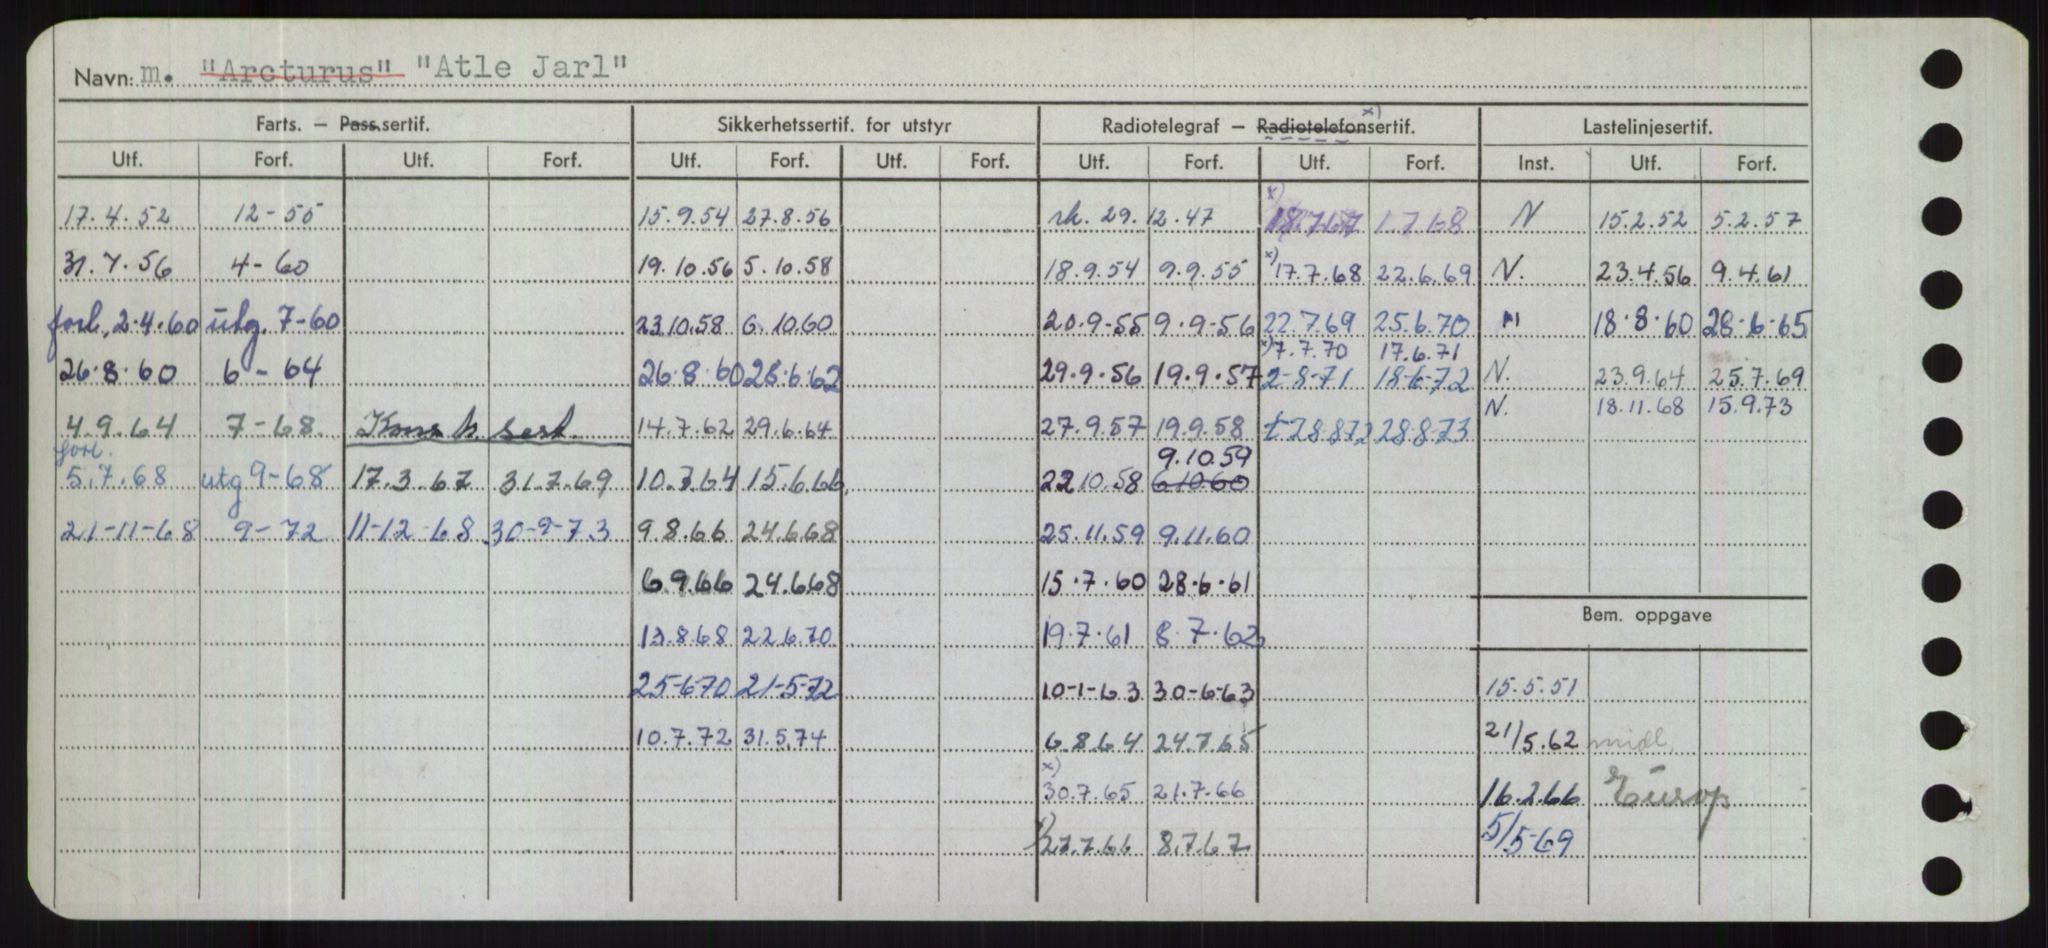 Navn: m. "Arcturus" "Atle Jarl"
Farts. – Pass.sertif. Sikkerhetssertif. for utstyr Radiotelegraf – Radiotelefonsertif. x) Lastelinjesertif.
Utf. Forf. Utf. Forf. Utf. Forf. Utf. Forf. Utf. Forf. Utf. Forf. Inst. Utf. Forf.
17.4.52 12-55 15.9.54 27.8.56 rk. 29.12.47 x) 18.7.67 1.7.68 N 15.2.52 5.2.57
31.7.56 4-60 19.10.56 5.10.58 18.9.54 9.9.55 x) 17.7.68 22.6.69 N. 23.4.56 9.4.61
forl, 2.4.60 utg. 7-60 23.10.58 6.10.60 20.9-55 9.9-56 22.7.69 25.6.70 N 18.8.60 28-6-65
x) 7.7.70 17.6.71
26.8.60 6-64 26.8.60 28.6.62 29.9.56 19.9.57 2-8-71 18-6-72 N. 23.9.64 25.7.69
N. 18.11.68 15.9.73
4.9.64 7-68. Konstr. sert. 14.7.62 29.6.64 27.9.57 19.9.58 t 28872 28.8.73
forl. 9.10.59
5.7.68 utg 9-68 17.3.67 31.7.69 10.7.64 15.6.66 22.10.58 6.10.60
21-11-68 9-72 11-12-68 30-9-73 9.8.66 24.6.68 25.11.59 9.11.60
6.9.66 24.6.68 15.7.60 28.6.61
Bem. oppgave
13.8.68 22.6.70 19.7.61 8.7.62
25-6-70 21-5-72 10-1-63 30-6-63 15.5.51
10.7.72 31.5.74 6.8.64 24.7.65 21/5.62 midl.
x) 30.7.65 21.7.66 16.2.66 Europ
x) 27.7.66 8.7.67 5/5-69